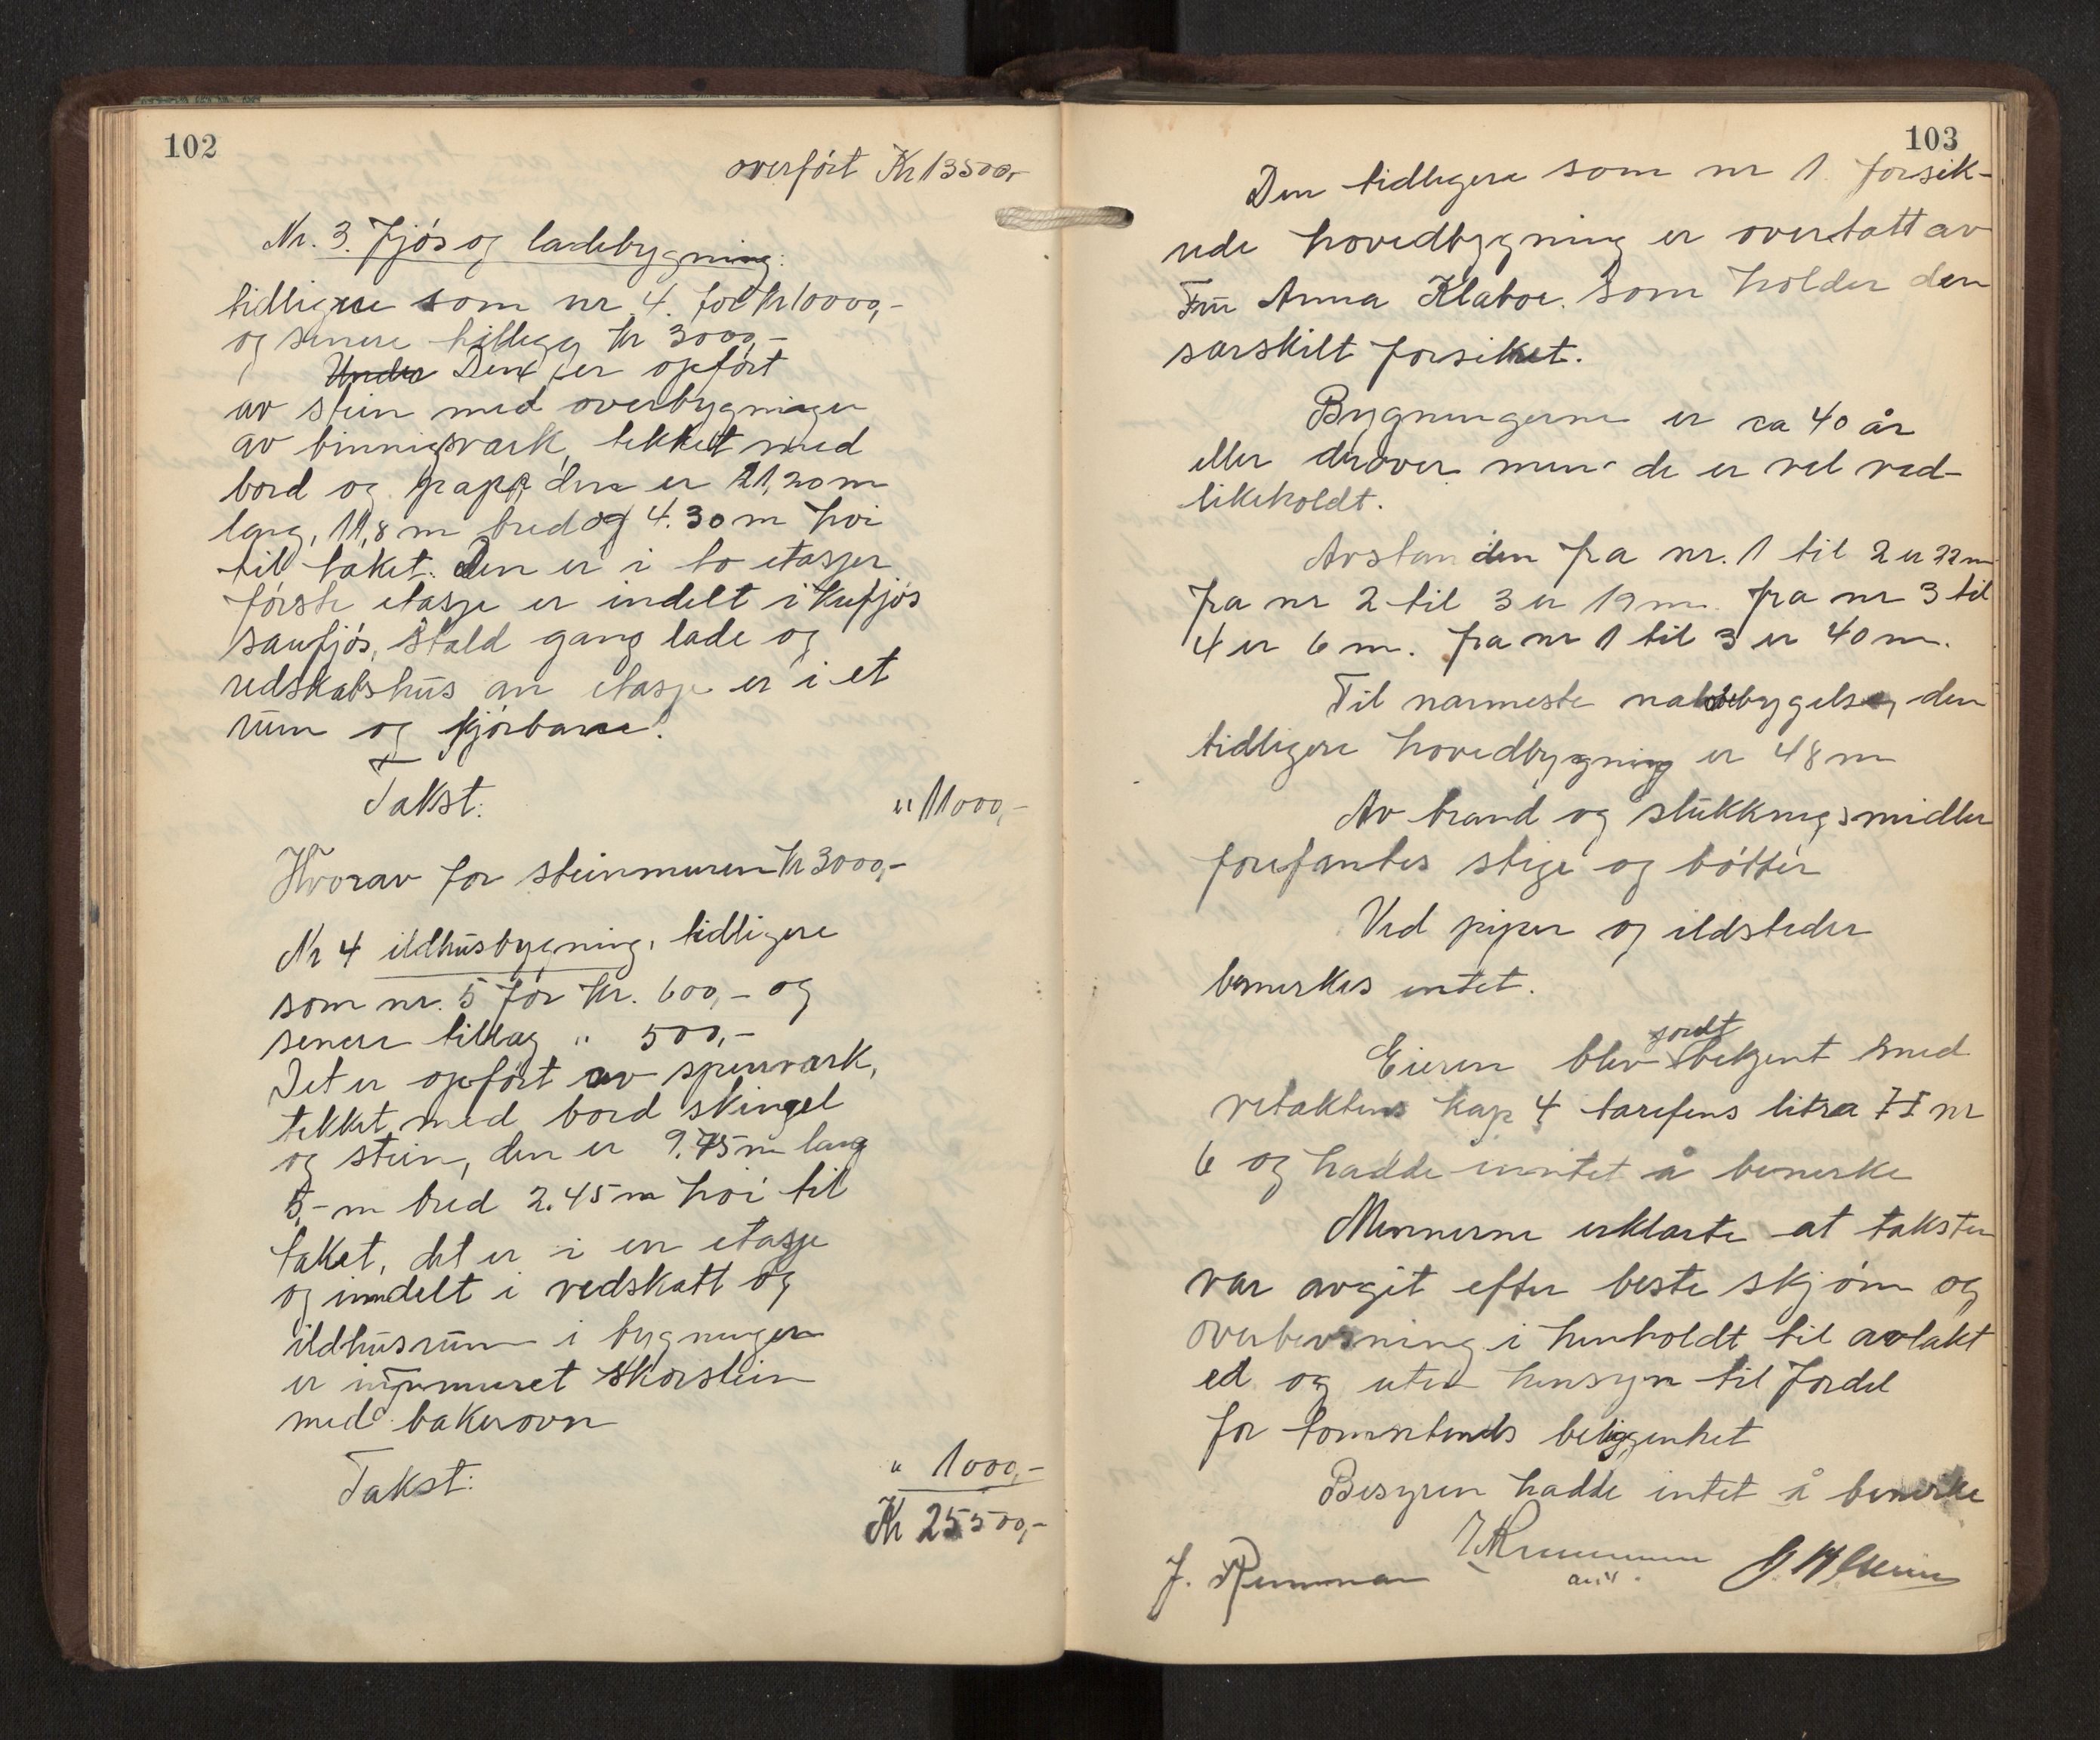 102
overført Kr 13500,-
Nr. 3. Fjøs og ladebygning:
tidligere som nr. 4. for kr 10000,-
og senere tillegg kr 3000,-
Under Den er opført
av stein med overbygninger
av binnigsværk, tekket med
bord og papp den er 21,20 m
lang, 11,8 m bred og 4.30 m høi
til taket. Den er i to etasjer
første etasje er indelt i kufjøs
saufjøs, stald gang lade og
redskabshus an etasje er i et
rum og kjørbane.
Takst: " 11000,-
Hvorav for steinmuren kr 3000,-
Nr 4 ildhusbygning, tidligere
som nr. 5 for kr. 600,- og
senere tillæg " 500,-
Det er opført av sperrværk,
tekket med bord skingel
og stein, den er 9.75 m lang
5,- m bred 2.45 m høi til
taket, det er i en etasje
og inndelt i vedskott og
ildhusrum i bygningen
er inpmuret skorstein
med bakerovn
Takst: " 1000,-
Kr 25500,-
103
Den tidligere som nr 1. forsik-
rede hovedbygning er overtatt av
Fru Anna Klaboe. som holder den
særskilt forsikret.
Bygningerne er ca 40 år
eller derover men de er vel ved-
likeholdt.
Avstanden fra nr. 1 til 2 er 22 m
fra nr 2 til 3 er 19 m. fra nr 3 til
4 er 6 m. fra nr 1 til 3 er 40 m.
Til nærmeste nabobygelse, den
tidligere hovedbygning er 48 m
Av brand og slukknigsmidler
forefantes stige og bøtter
Ved piper og ildsteder
bemerkes intet.
gjordt
Eieren blev bekjent med
vetaktens kap 4 tarefens litra II nr
6 og hadde inntet å bemerke
Mennerne erklærte at taksten
var avgit efter beste skjønn og
overbevisning i henholdt til avlakt
ed og uten hensyn til fordel
for tomntends beliggenhet
Besyren hadde intet å bemerke
J.